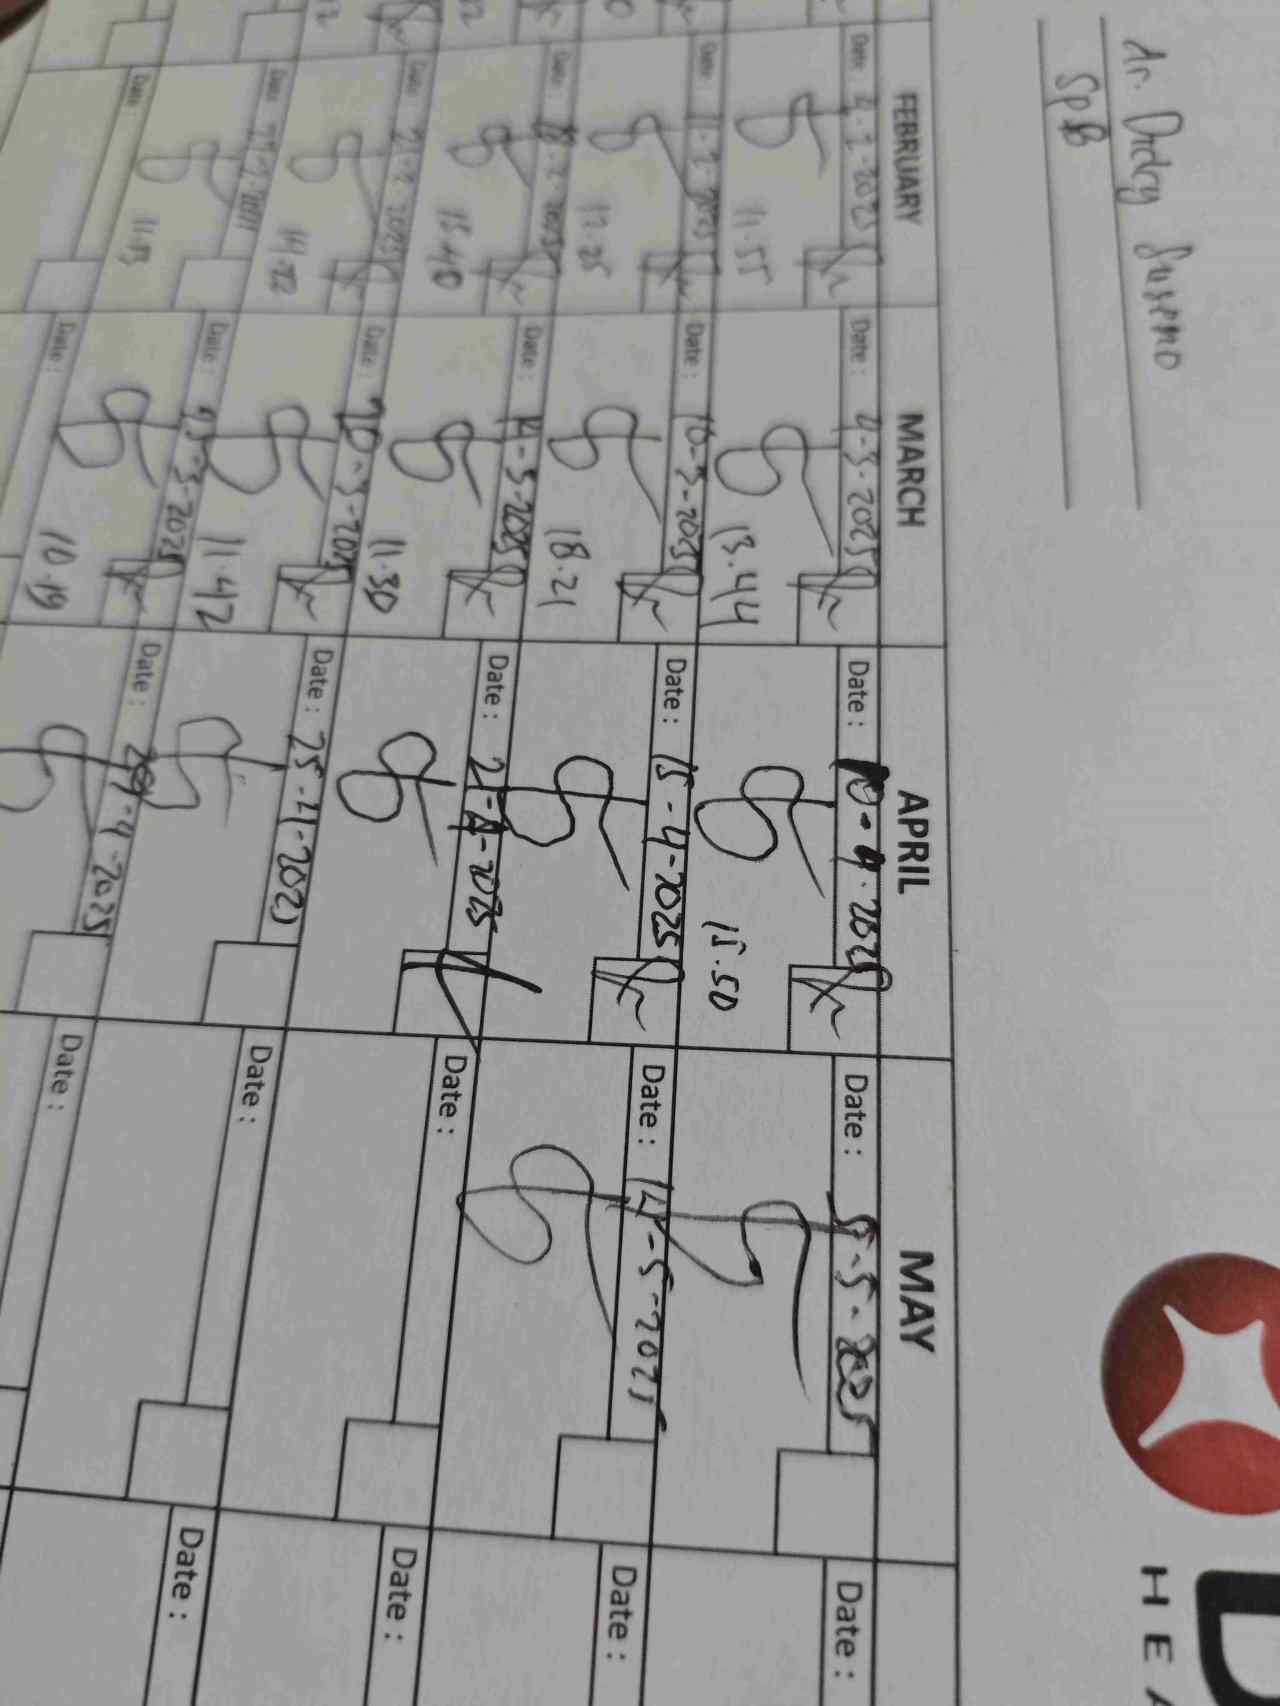 dr. Dredy Suseno
SpB
D
HEA
FEBRUARY MARCH APRIL MAY
Date: 4-2-2025 Date: 4-3-2025 Date: 10-4-2025 Date: 5-5-2025 Date:
11.55 13.44 15.50
Date: 11-2-2025 Date: 10-3-2025 Date: 15-4-2025 Date: 14-5-2025 Date:
12.25 18.21
Date: 18-2-2025 Date: 14-3-2025 Date: 21-4-2025 Date: Date:
15.40 11.30
Date: 21-2-2025 Date: 20-3-2025 Date: 25-4-2025 Date: Date:
14.22 11.42
Date: Date: 25-3-2025 Date: 29-4-2025 Date:
11.13 10.19
Date: Date: